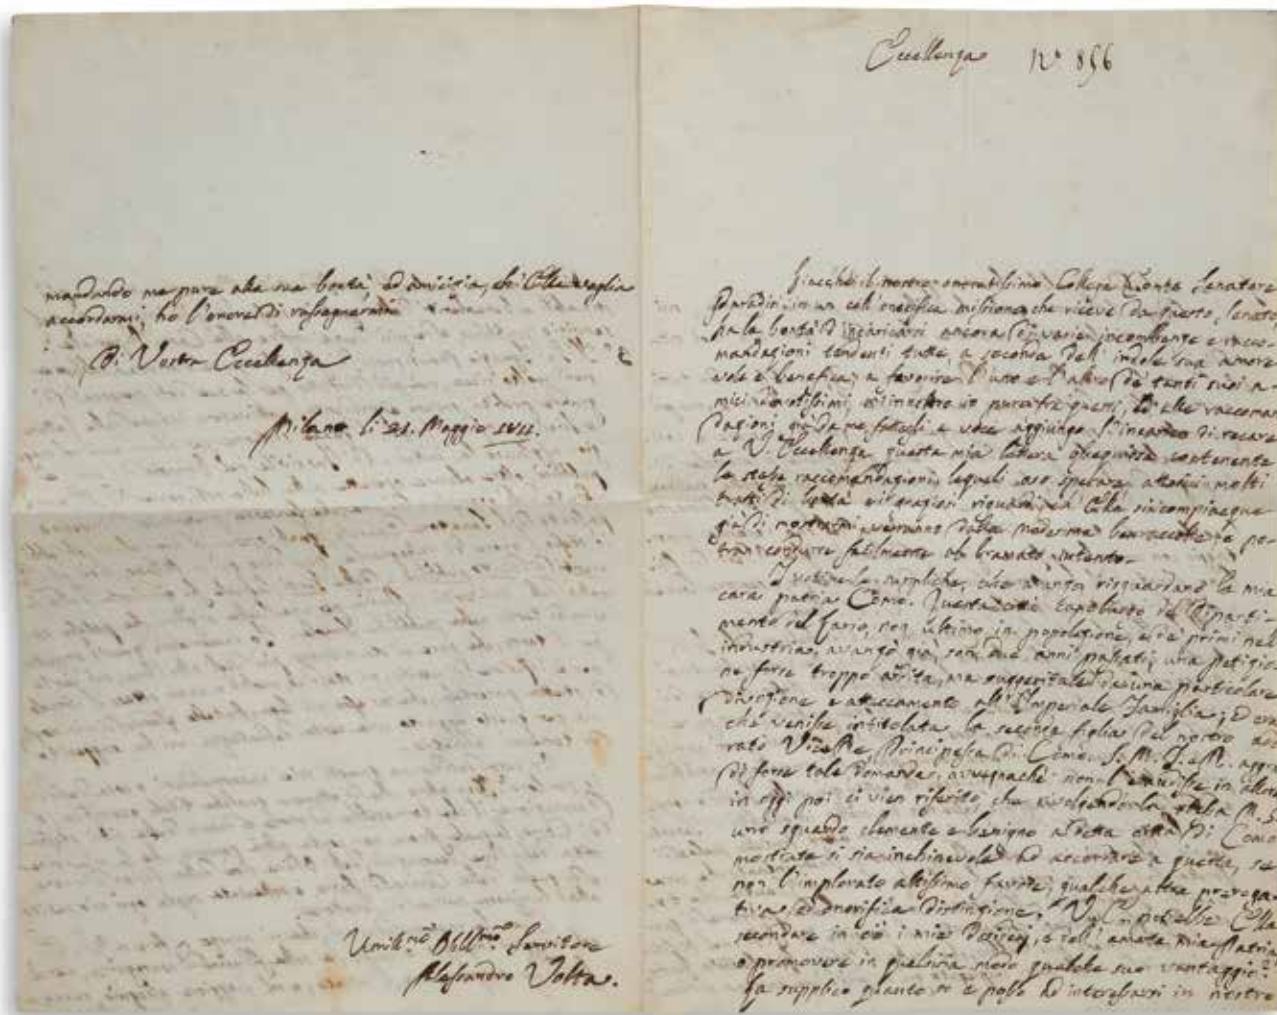 mandando me pure alla sua bontà, ed amicizia, ch' Ella voglia
accordarmi, ho l'onore di rassegnarmi
Di Vostra Eccellenza
Milano li 21. Maggio 1811.
Umil.mo Obbl.mo Servitore
Alessandro Volta.
Eccellenza N.° 856
Giacchè il nostro onoratissimo Collega Conte Senatore
Paradisi, in un coll' onorifica missione che riceve da questo Senato,
ha la bontà d'incaricarsi ancora di varie incombenze e racco-
mandazioni tendenti tutte, a seconda dell' indole sua amore-
vole e benefica, a favorire l'uno e l'altro de' tanti suoi a-
mici, io pure fra questi, ed alle raccoman-
dazioni già da me fattegli a voce aggiungo l'incarico di recare
a V. Eccellenza questa mia lettera contenente
le stesse raccomandazioni, le quali oso sperare, attesi i molti
tratti di bontà ed graziosi riguardi, ch' Ella si compiacque
già di mostrarmi, verranno dalla medesima ben accolte, e po-
tran condurre facilmente al bramato intento.
I voti e le suppliche, che avanzo risguardano la mia
cara patria Como. Questa città capoluogo del Diparti-
mento del Lario, non ultimo in popolazione, e de' primi nell'
industria, avanzò già, son due anni passati, una petizio-
ne forse troppo ardita, ma suggeritale da una particolare
divozione e attaccamento all' Imperiale Famiglia; ed era
che venisse intitolata la seconda figlia del nostro ado-
rato Vice Re, Principessa di Como. S. M. I. e R. aggra-
dì forse tale domanda, avvegnachè non l'esaudisse in allora
in oggi poi ci vien riferito, che rivolgendo la stessa M. S.
uno sguardo clemente e benigno a detta città di Como
mostrata si sia inchinevole ad accordare a questa, se
non l'implorato altissimo favore, qualche altra preroga-
tiva, ed onorifica distinzione. V. E. potrebbe Ella
secondare in ciò i miei desiderj, e dell' amata mia Patria,
o promovere in qualsisia modo qualche suo vantaggio?
La supplico quanto so e posso ad interessarsi in nostro